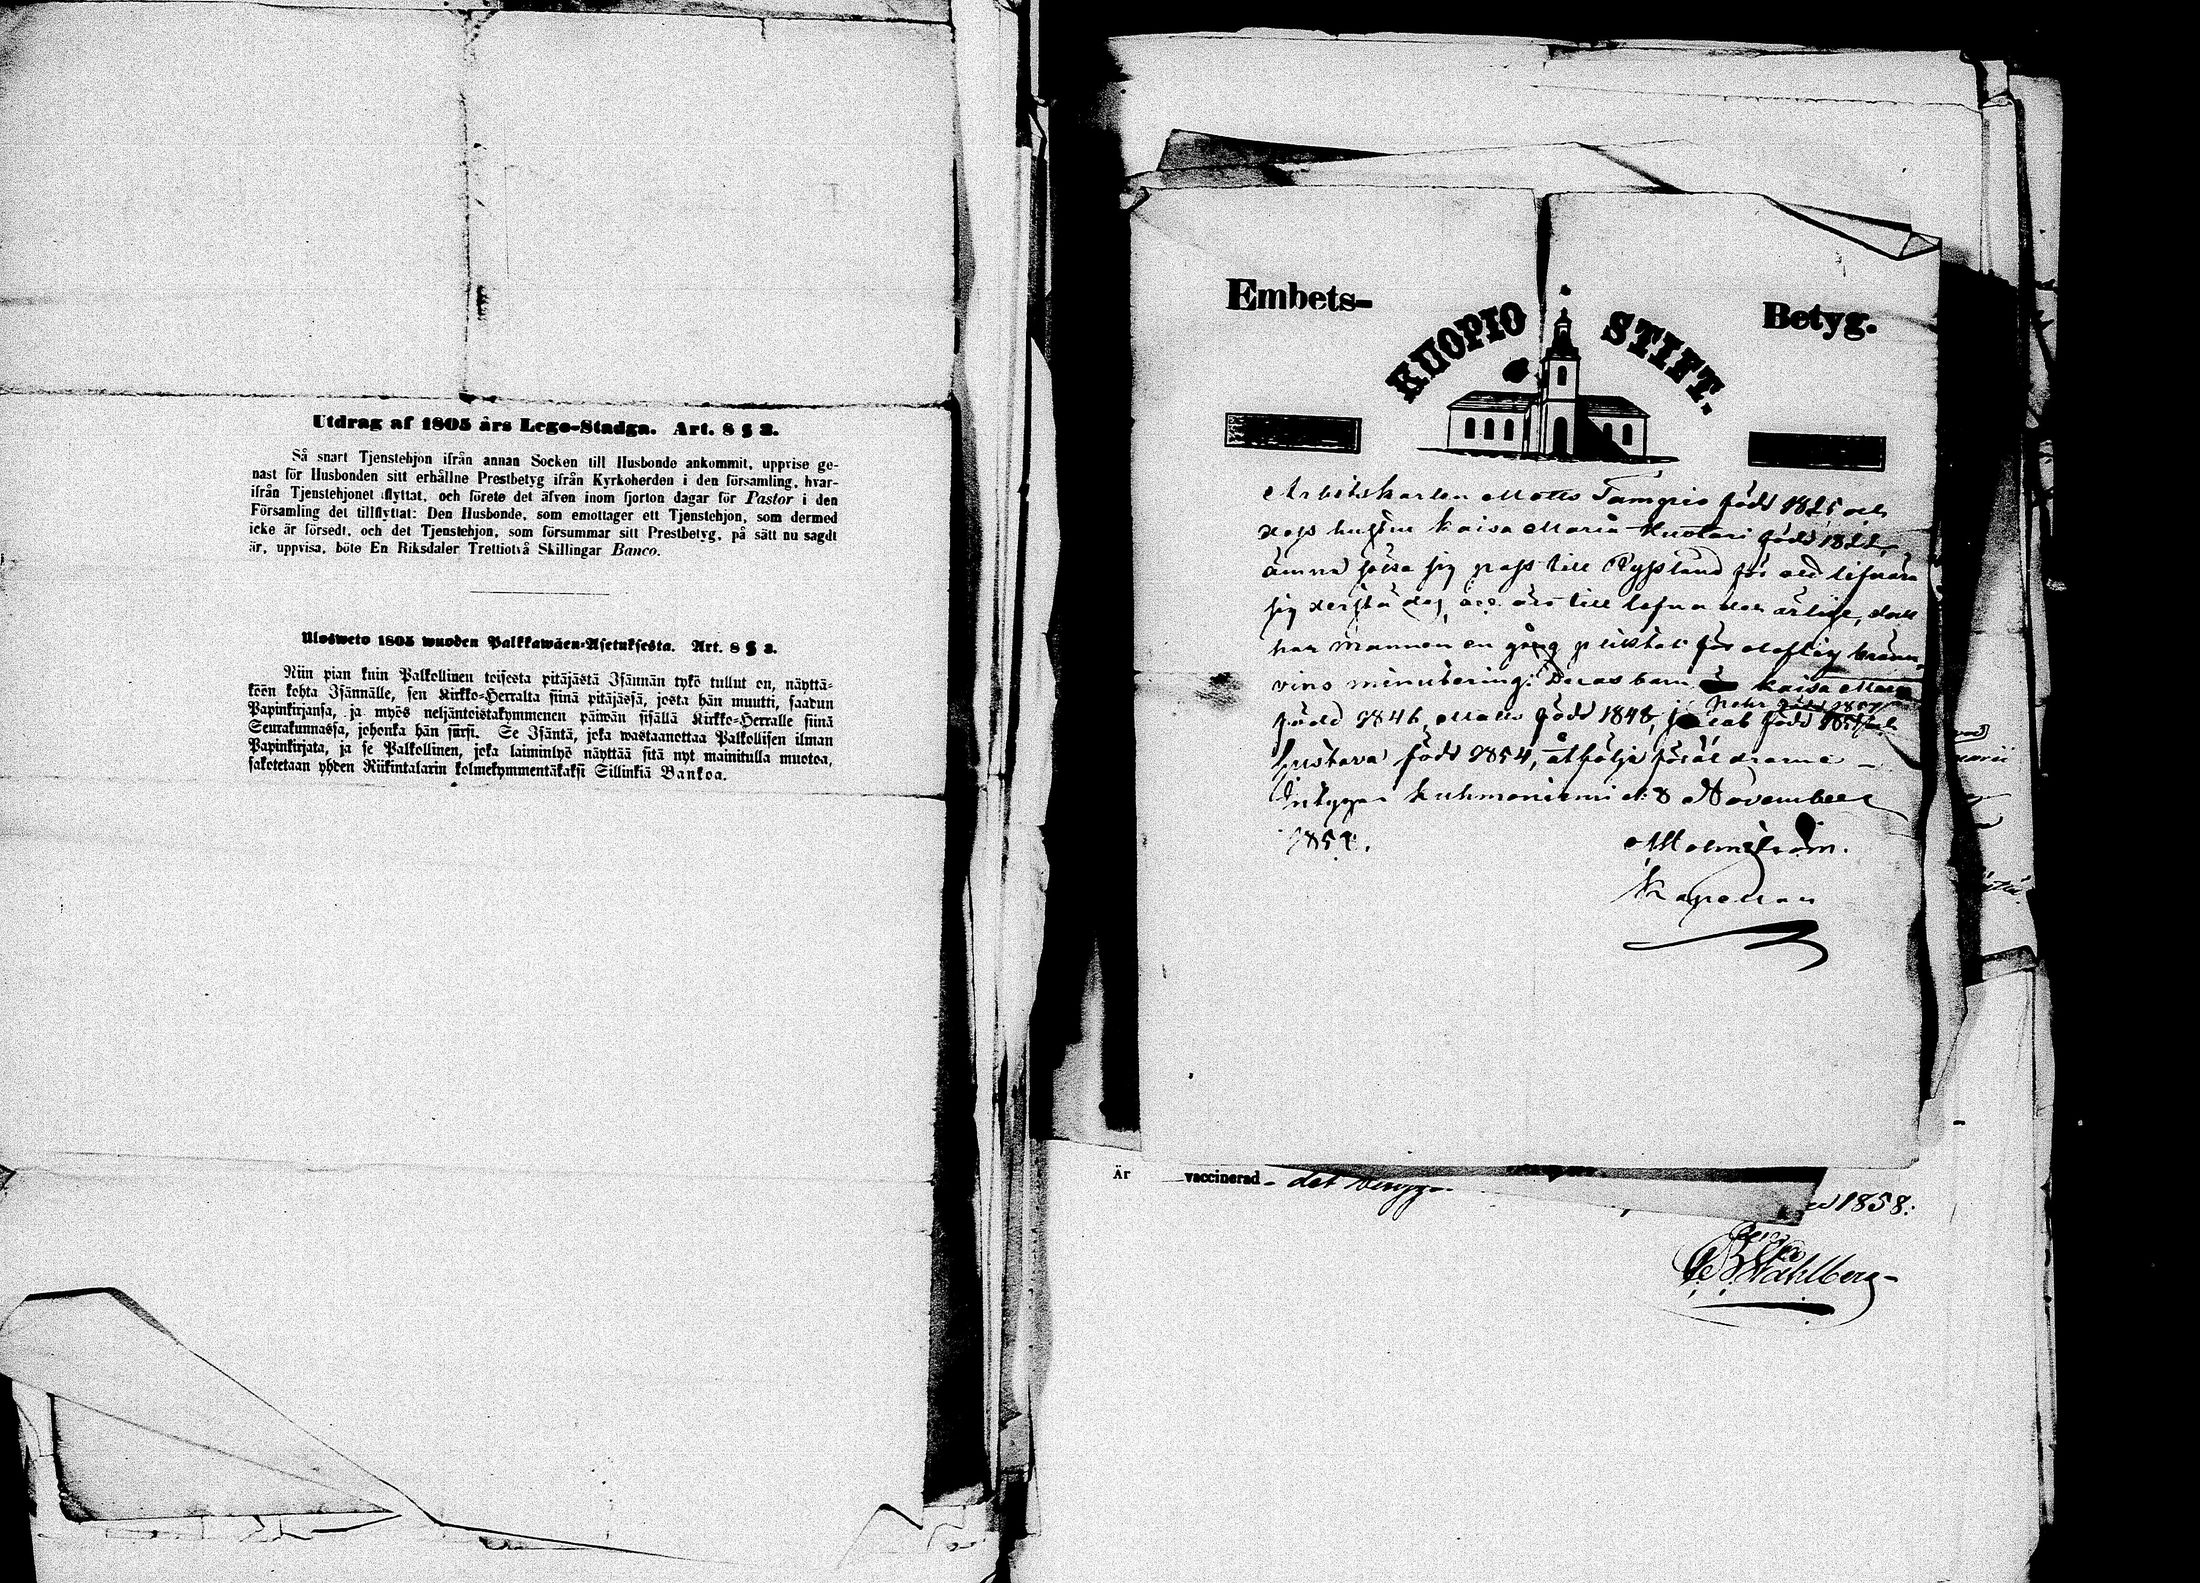 Utdrag af 1805 års Lego-Stadga. Art. 8 § 3.
Så snart Tjenstehjon ifrån annan Socken till Husbonde ankommit, uppvise ge-
nast för Husbonden sitt erhållne Prestbetyg ifrån Kyrkoherden i den församling, hvar-
ifrån Tjenstehjonet flyttat, och förete det äfven inom fjorton dagar för Pastor i den
Församling det tillflyttat: Den Husbonde, som emottager ett Tjenstehjon, som dermed
icke är försedt, och det Tjenstehjon, som försummar sitt Prestbetyg, på sätt nu sagdt
är, uppvisa, böte En Riksdaler Trettiotvå Skillingar Banco.
Ulosweto 1805 wuoden Palkkawäen-Asetuksesta. Art. 8 § 3.
Niin pian kuin Palkollinen toisesta pitäjästä Isännän tykö tullut on, näyttä-
köön kohta Isännälle, sen Kirkko-Herralta siinä pitäjässä, josta hän muutti, saadun
Papinkirjansa, ja myös neljäntoistakymmenen päiwän sisällä Kirkko-Herralle siinä
Seurakunnassa, johonka hän siirsi. Se Isäntä, joka wastaanottaa Palkollisen ilman
Papinkirjata, ja se Palkollinen, joka laiminlyö näyttää sitä nyt mainitulla muotoa,
sakotetaan yhden Riikintalarin kolmekymmentäkaksi Sillinkiä Bankoa.
Embets- Betyg.
KUOPIO STIFT.
Arbetskarlen Matts Tampio född 1825 och
dess hustru Kaisa Maria Kuotari född 1822,
ämna lösa sig pass till Ryssland för att lifnära
sig derstädes, och äro till lefnaden ärlige, dock
har mannen en gång pliktat för olaglig bränn-
vins minutering. Deras barn Kaisa Maria
född 1846, Matts född 1848, Jakob född
Gustava född 1854, åtfölja föräldrarne
Intygar Kuhmoniemi d. 8 November
185
Malmström.
Kapellan
Är vaccinerad det
1858.
Wahlberg